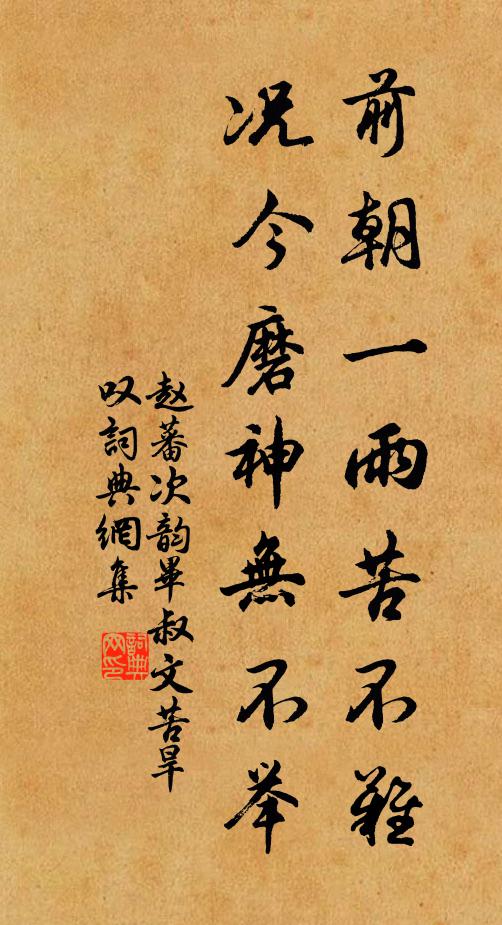 前朝一雨苦不难
况今磨神無不举
赵蕃次韵畢叔文苦旱
叹詞典網集
詞典网印